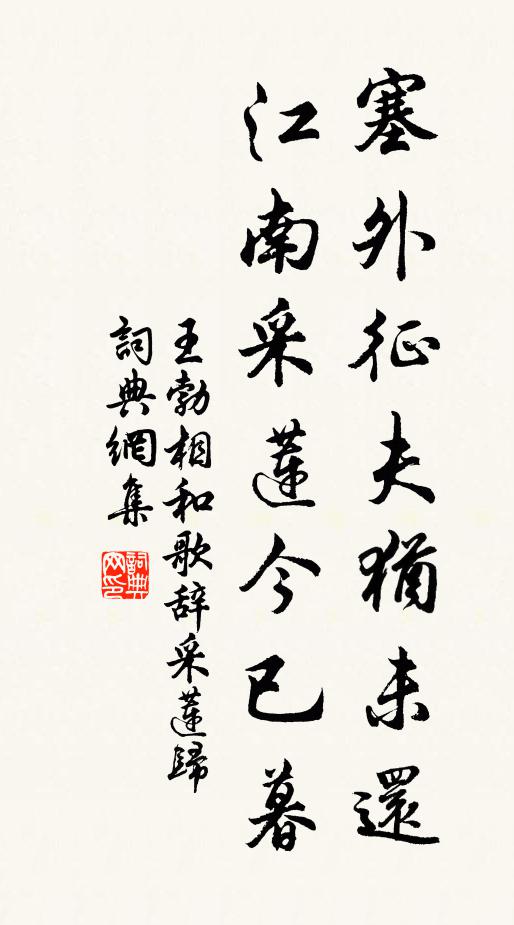 塞外征夫猶未還
江南采蓮今已暮
王勃相和歌辞采蓮歸
詞典網集
詞典
网印